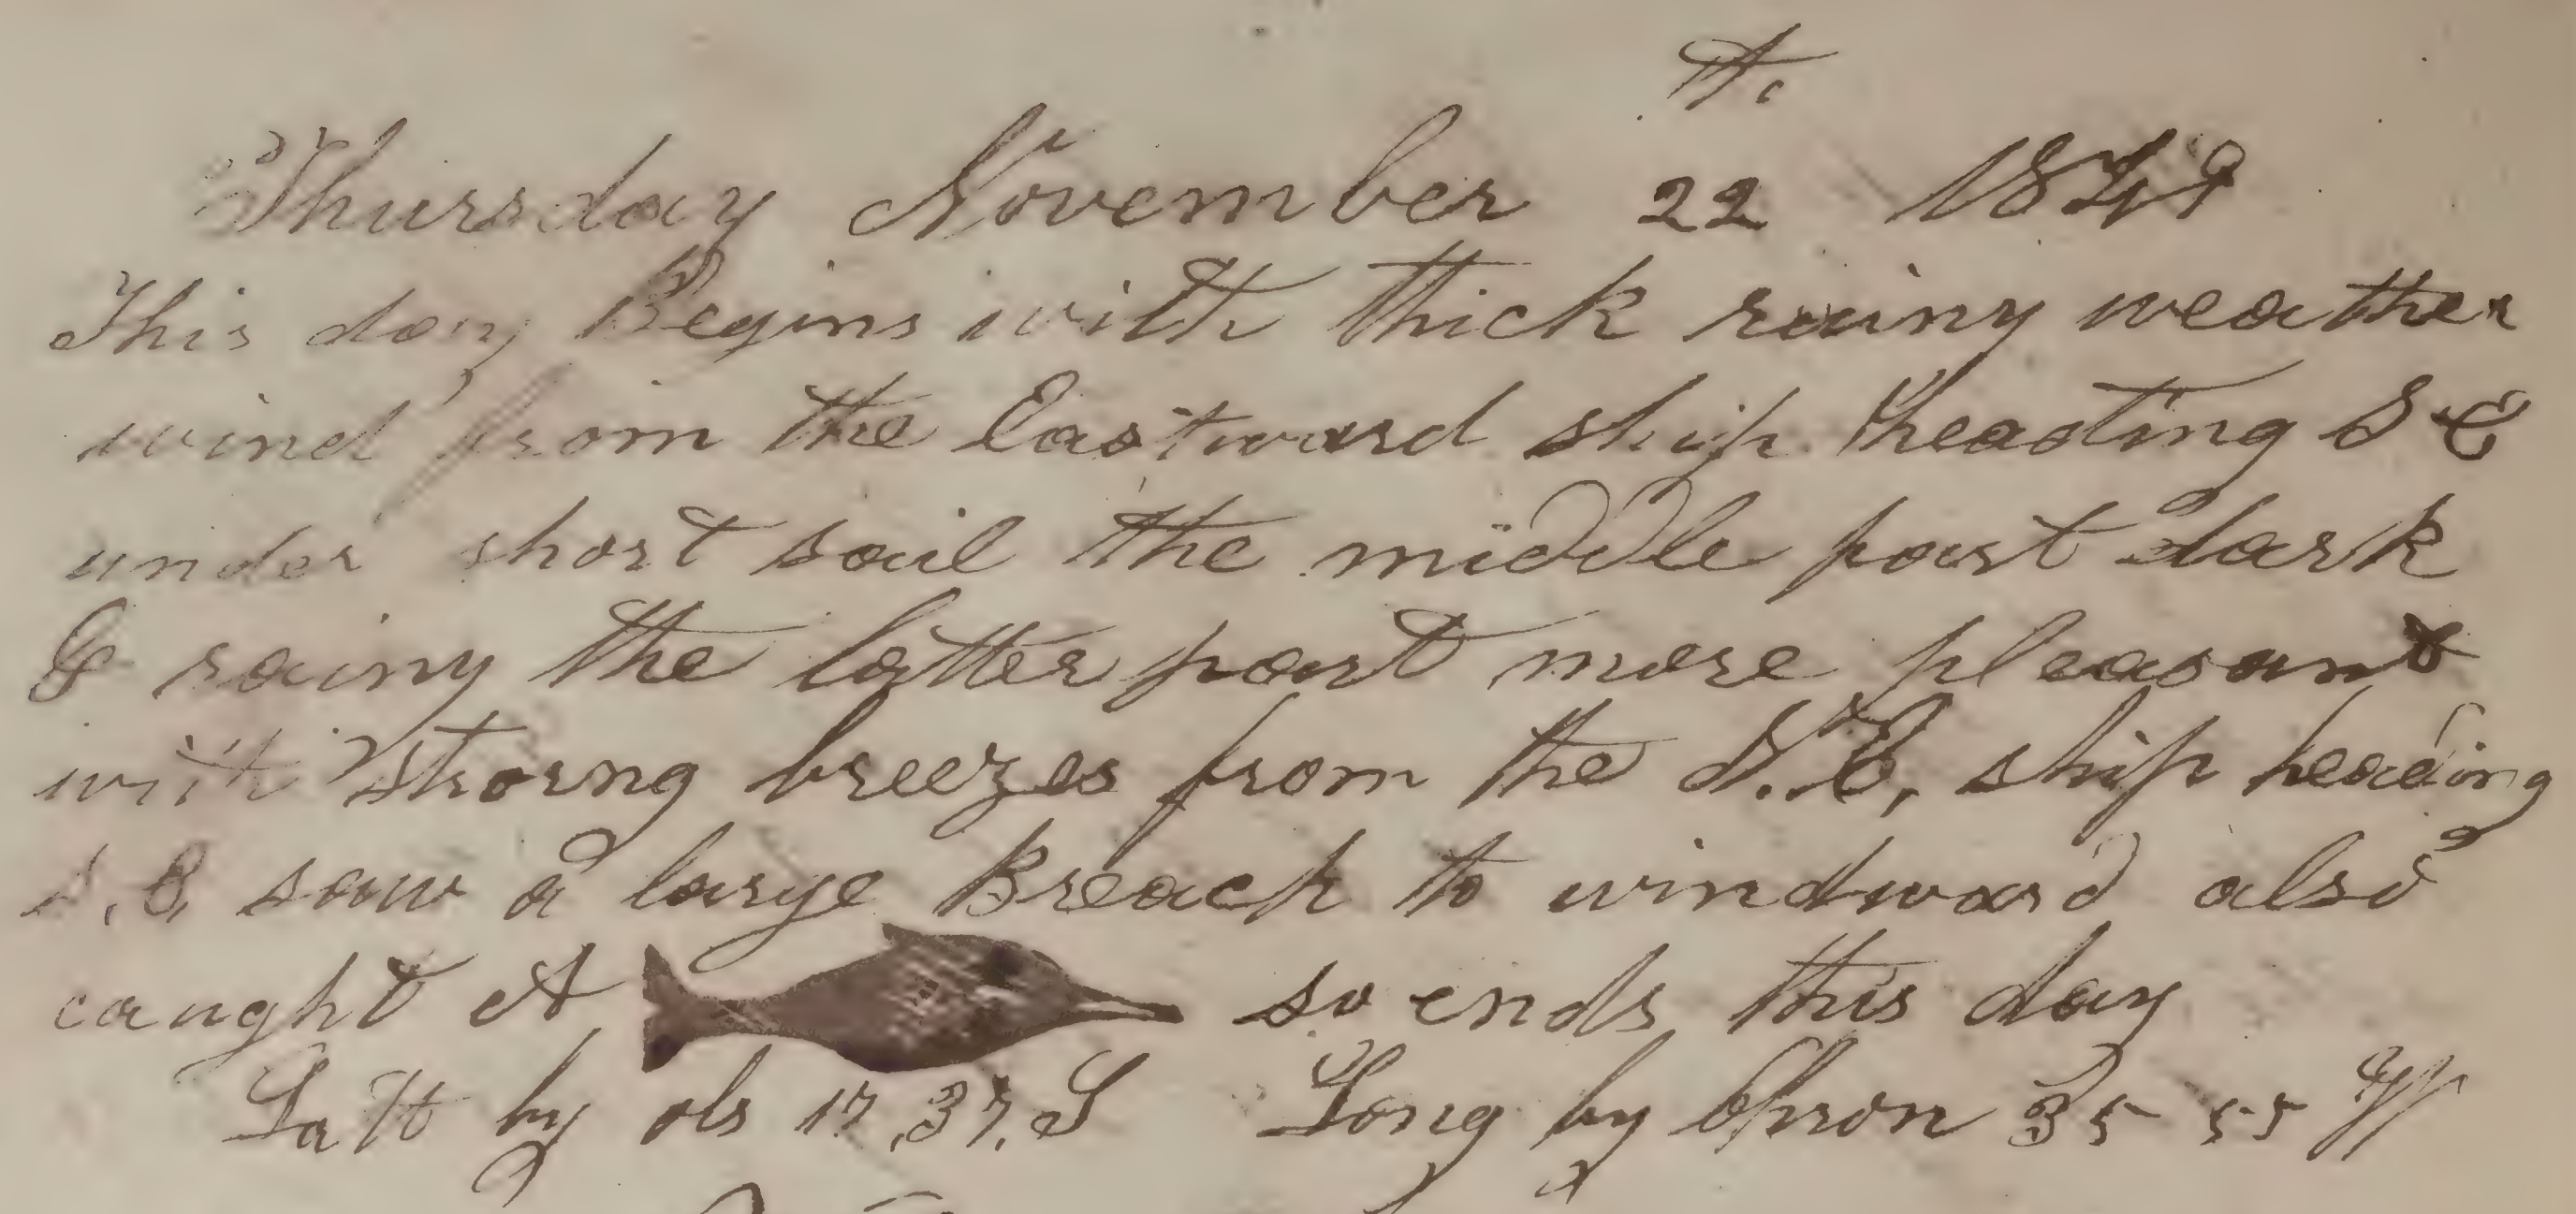 Thursday November 22 th. 1849
This day Begins with thick rainy weather
wind from the Eastward ship heading S E
under short sail the middle part dark
& rainy the latter part more pleasant
with strorng breezes from the N.E, ship heading
S,E, saw a large Breach to windward also
caught A so ends this day
Latt by obs 17,37,S Long by Chron 35 55 W